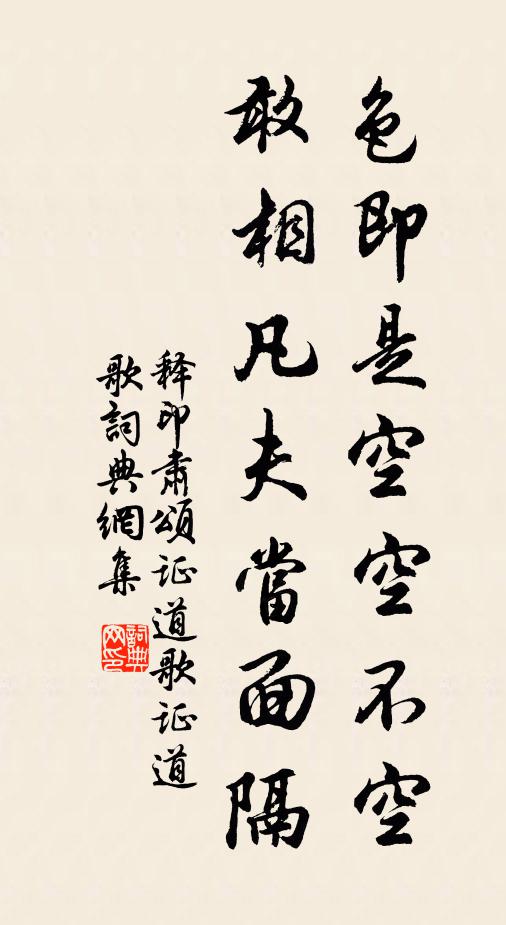 色即是空空不空
敢相凡夫當面隔
释印肃頌证道歌证道
歌詞典網集
詞典
网印